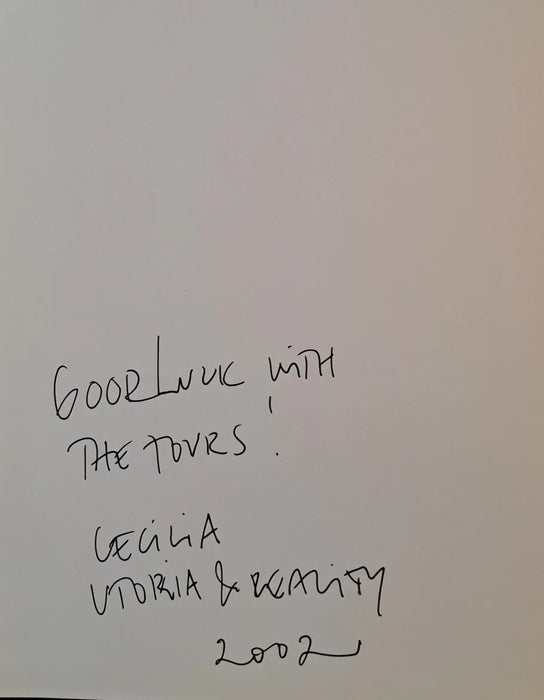 GOOD LUCK WITH
THE TOURS!
CECILIA
UTOPIA & REALITY
2002